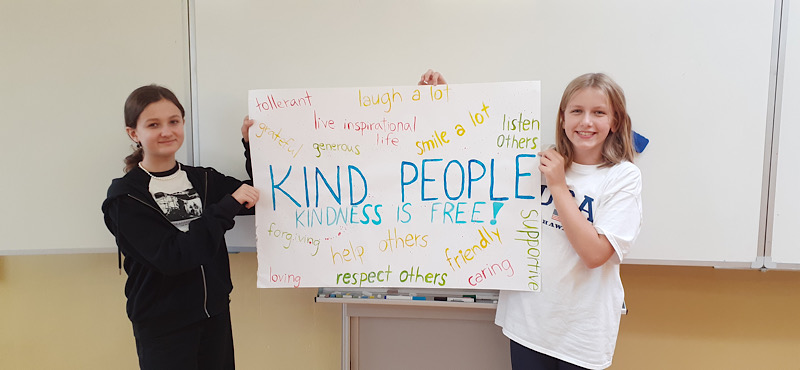 tollerant
laugh a lot
live inspirational
life
smile a lot
listen
others
grateful
generous
KIND PEOPLE
KINDNESS IS FREE!
forgiving
help others
friendly
supportive
loving
respect others
caring